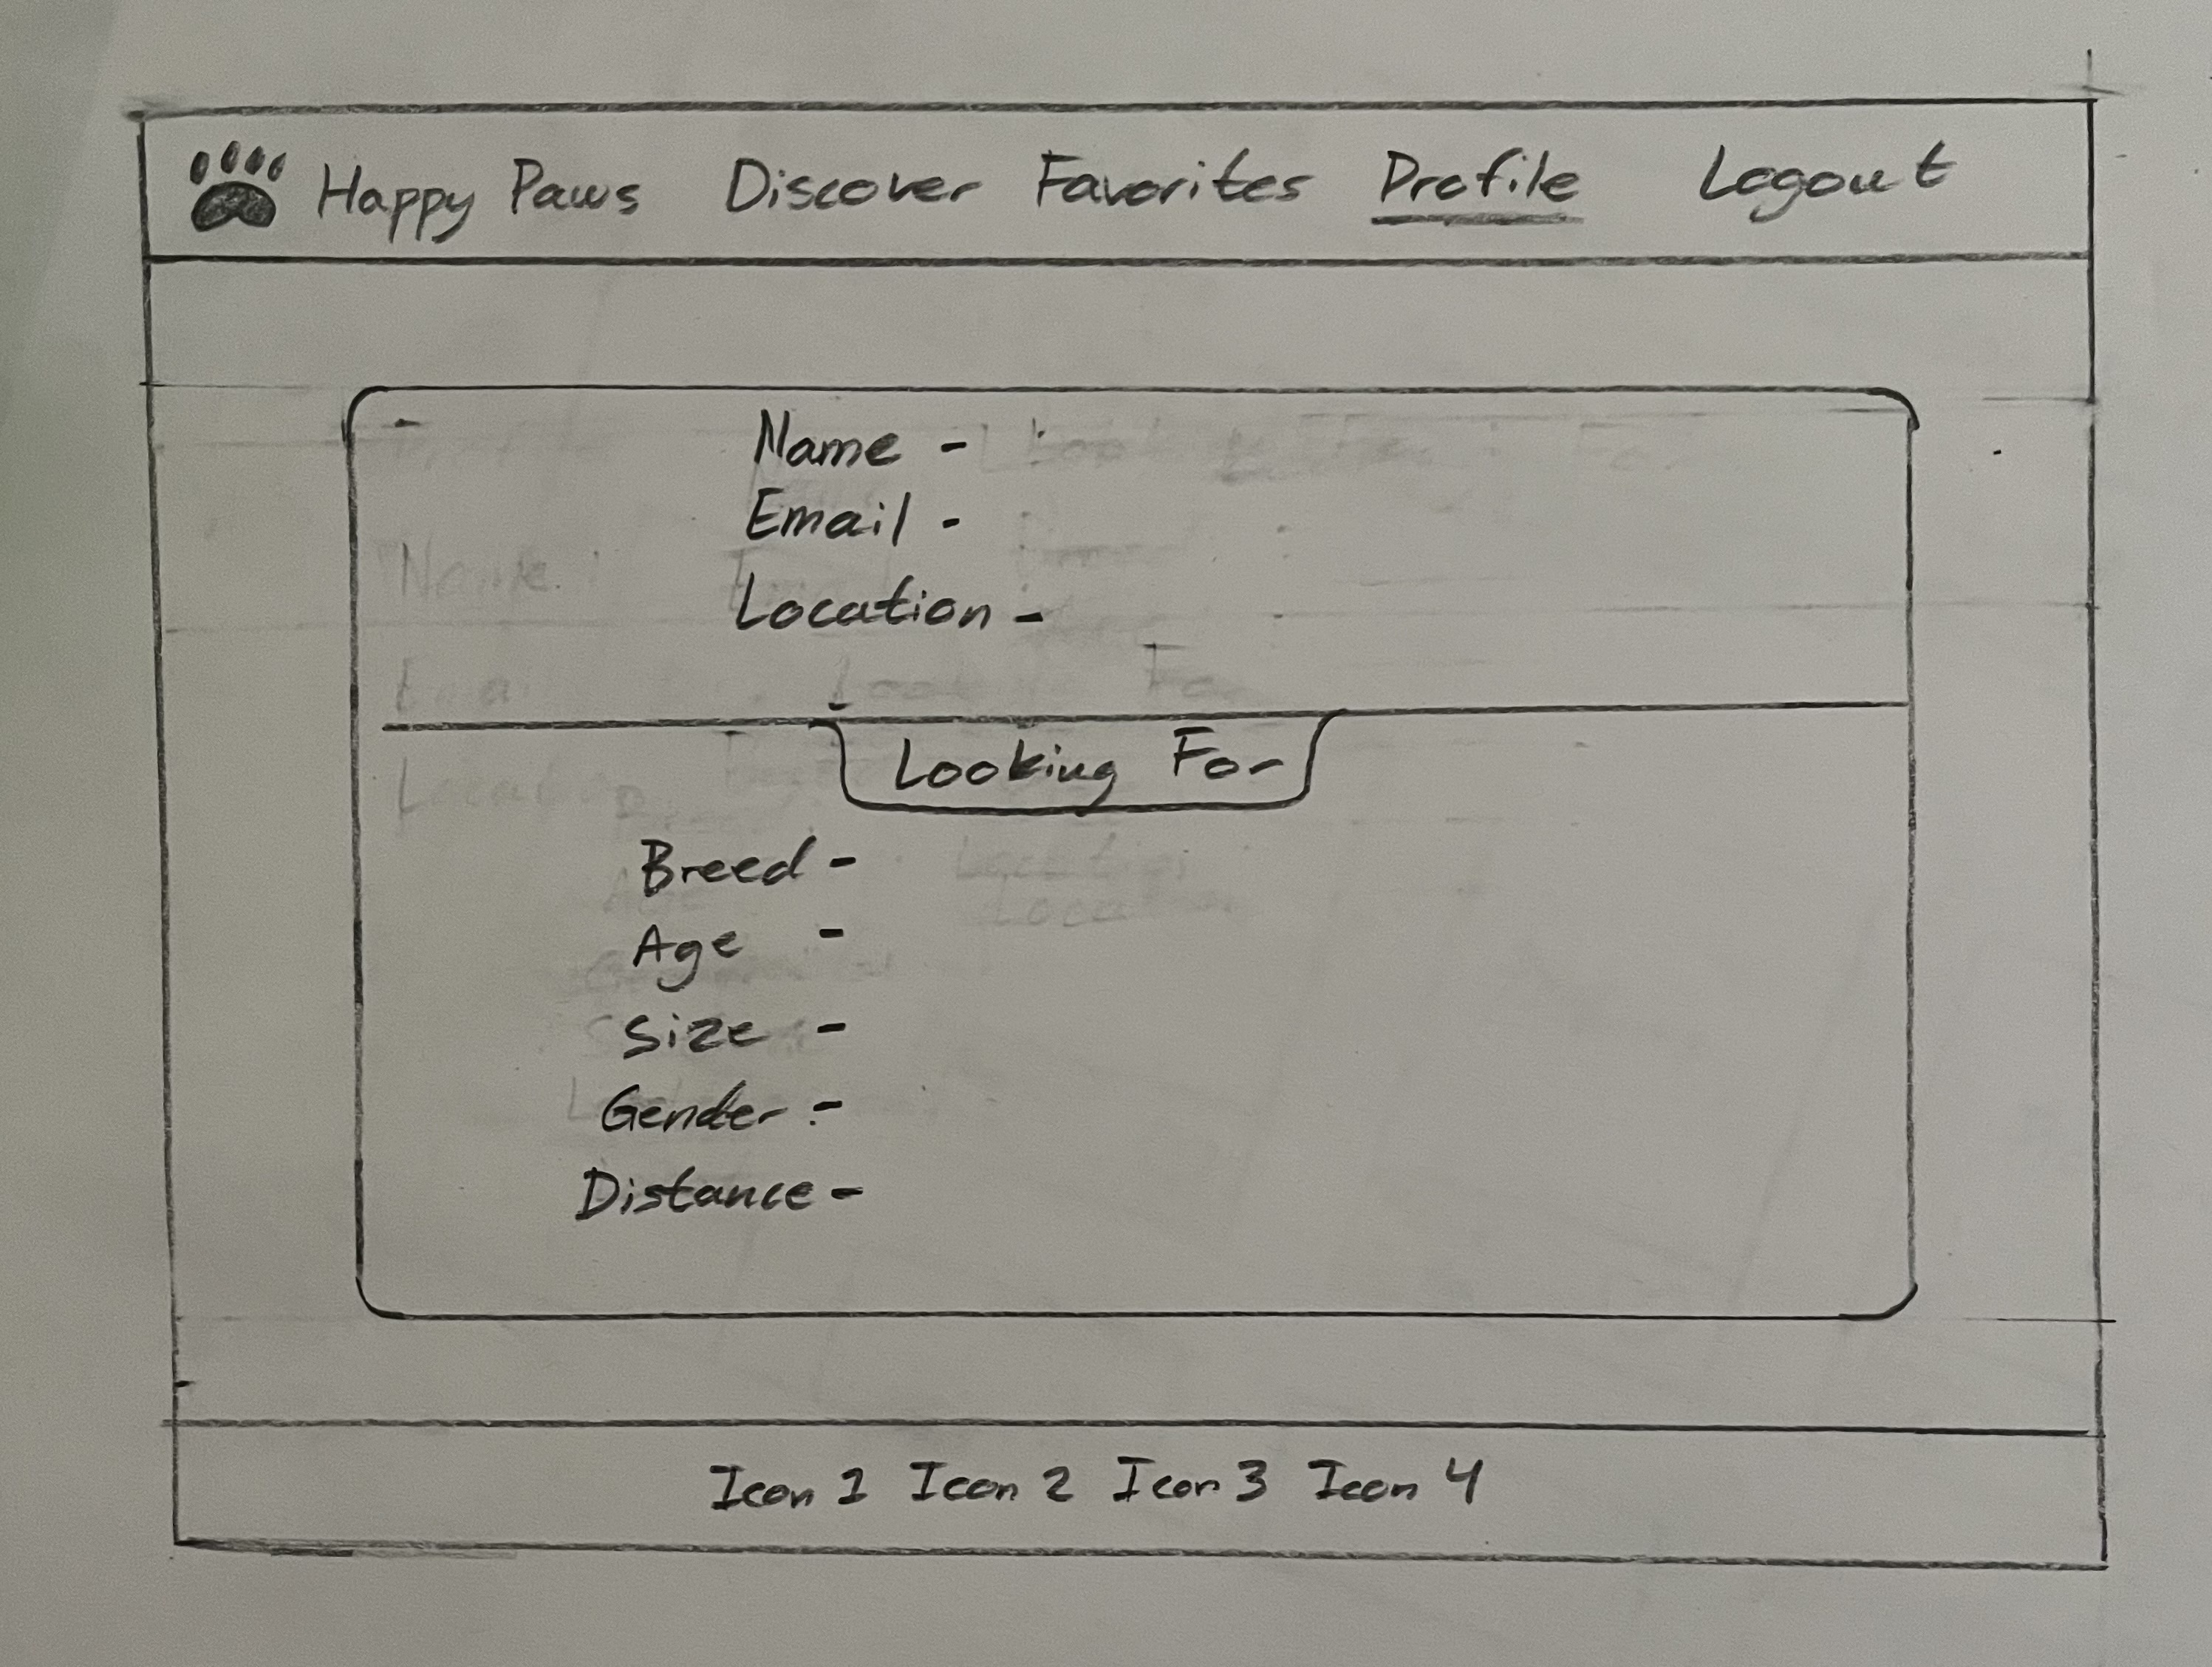 Happy Paws Discover Favorites Profile Logout
Name -
Email -
Location -
Looking For
Breed -
Age -
Size -
Gender -
Distance -
Icon 1 Icon 2 Icon 3 Icon 4